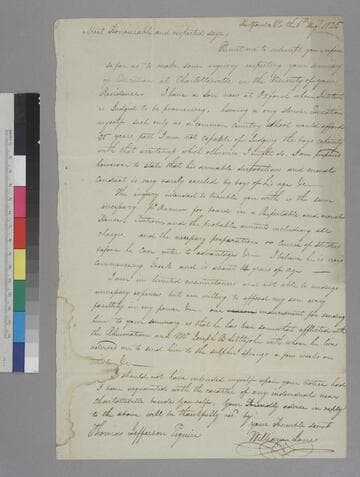 Most Honourable and respected sage,
Permit me to intrude upon your repose
so far as to make some inquiry respecting your Seminary
of Education at Charlottesville, in the vicinity of your
Residence. I have a son now at Oxford whose
is Judged to be promising. having a very slender Education
myself such only as a common country school would afford
35 years past I am not capable of Judging the boys capacity
with that exactness which otherwise I might do. I am
however to state that his amiable disposition and moral
conduct is very rarely excelled by boys of his age &c
The inquiry intended to trouble you with is the sum
necessary for board in a respectable and moral
House, Tuition and the probable amount including all
charges and the necessary preparation or course of studies
before he can enter to advantage &c. I believe he is now
commencing Greek and is about years of age
I am in limited circumstances and not able to undergo
unnecessary expenses but am willing to afford my son every
facility in my power &c. one inducement for sending
him to your seminary is that he has been somewhat afflicted with
the Rheumatism and Mr Joseph B. with whom he lives
advised me to send him to the sulphur springs a few weeks on
I should not have intruded myself upon your notice had
I been acquainted with the caracter of any individual near
Charlottesville beside yourself. Your Friendly advice in reply
to the above will be thankfully recd by
your Humble Servt
Thomas Jefferson Esquire